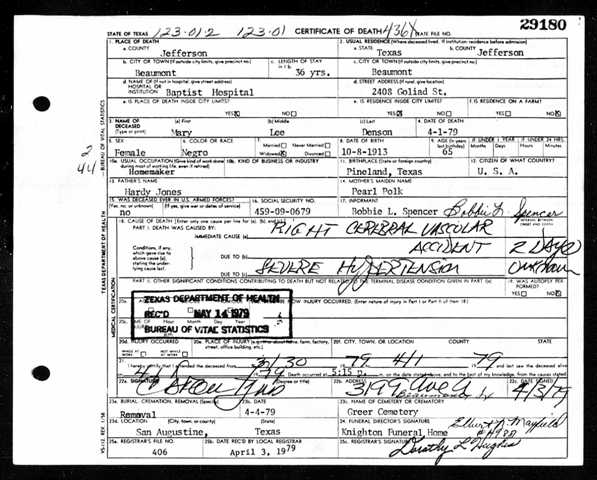 29180
STATE OF TEXAS 123.012 123.01 CERTIFICATE OF DEATH 436X STATE FILE NO.
1. PLACE OF DEATH 2. USUAL RESIDENCE (Where deceased lived. If institution: residence before admission)
a. COUNTY Jefferson a. STATE Texas b. COUNTY Jefferson
b. CITY OR TOWN (If outside city limits, give precinct no.) c. LENGTH OF STAY in 1 b. c. CITY OR TOWN (If outside city limits, give precinct no.)
Beaumont 36 yrs. Beaumont
d. NAME OF (If not in hospital, give street address) HOSPITAL OR INSTITUTION Baptist Hospital d. STREET ADDRESS (If rural, give location) 2408 Goliad St.
e. IS PLACE OF DEATH INSIDE CITY LIMITS? YES NO e. IS RESIDENCE INSIDE CITY LIMITS? YES NO f. IS RESIDENCE ON A FARM? YES NO
3. NAME OF DECEASED (Type or print) (a) First (b) Middle (c) Last 4. DATE OF DEATH
Mary Lee Denson 4-1-79
5. SEX 6. COLOR OR RACE 7. Married Never Married Widowed Divorced 8. DATE OF BIRTH 9. AGE (In years last birthday) IF UNDER 1 YEAR IF UNDER 24 HRS.
Female Negro 10-8-1913 65
10a. USUAL OCCUPATION (Give kind of work done during most of working life, even if retired) 10b. KIND OF BUSINESS OR INDUSTRY 11. BIRTHPLACE (State or foreign country) 12. CITIZEN OF WHAT COUNTRY?
Homemaker Pineland, Texas U. S. A.
13. FATHER'S NAME 14. MOTHER'S MAIDEN NAME
Hardy Jones Pearl Polk
15. WAS DECEASED EVER IN U.S. ARMED FORCES? 16. SOCIAL SECURITY NO. 17. INFORMANT
no 459-09-0679 Bobbie L. Spencer Bobbie L. Spencer
18. CAUSE OF DEATH (Enter only one cause per line for (a), (b), and (c).) INTERVAL BETWEEN ONSET AND DEATH
PART I. DEATH WAS CAUSED BY: IMMEDIATE CAUSE (a) RIGHT CEREBRAL VASCULAR
Conditions, if any, which gave rise to above cause (a) stating the underlying cause last. DUE TO (b) ACCIDENT 2 Days
DUE TO (c) SEVERE HYPERTENSION Unknown
PART II. OTHER SIGNIFICANT CONDITIONS CONTRIBUTING TO DEATH BUT NOT RELATED TO THE TERMINAL DISEASE CONDITION GIVEN IN PART I(a) 19. WAS AUTOPSY PERFORMED? YES NO
TEXAS DEPARTMENT OF HEALTH
REC'D MAY 14 1979
BUREAU OF VITAL STATISTICS
HOW INJURY OCCURRED. (Enter nature of injury in Part I or Part II of item 18.)
20d. INJURY OCCURRED 20e. PLACE OF INJURY (e.g., in or about home, farm, factory, street, office building, etc.) 20f. CITY, TOWN, OR LOCATION COUNTY STATE
21. I hereby certify that I attended the deceased from 3/30 79 4/1 79
Death occurred at 5:15 p.m. on the date stated above, and to the best of my knowledge, from the causes stated
22a. SIGNATURE (Degree or title) 22b. ADDRESS 3199 Ave A Beaumont, Tx 22c. DATE SIGNED 4/3/79
23a. BURIAL, CREMATION, REMOVAL (Specify) 23b. DATE 23c. NAME OF CEMETERY OR CREMATORY
Removal 4-4-79 Greer Cemetery
23d. LOCATION (City, town, or county) (State) 24. FUNERAL DIRECTOR'S SIGNATURE
San Augustine, Texas Knighton Funeral Home #4980
25a. REGISTRAR'S FILE NO. 25b. DATE REC'D BY LOCAL REGISTRAR 25c. REGISTRAR'S SIGNATURE
406 April 3, 1979 Dorothy L. Hughes
TEXAS DEPARTMENT OF HEALTH — BUREAU OF VITAL STATISTICS
MEDICAL CERTIFICATION